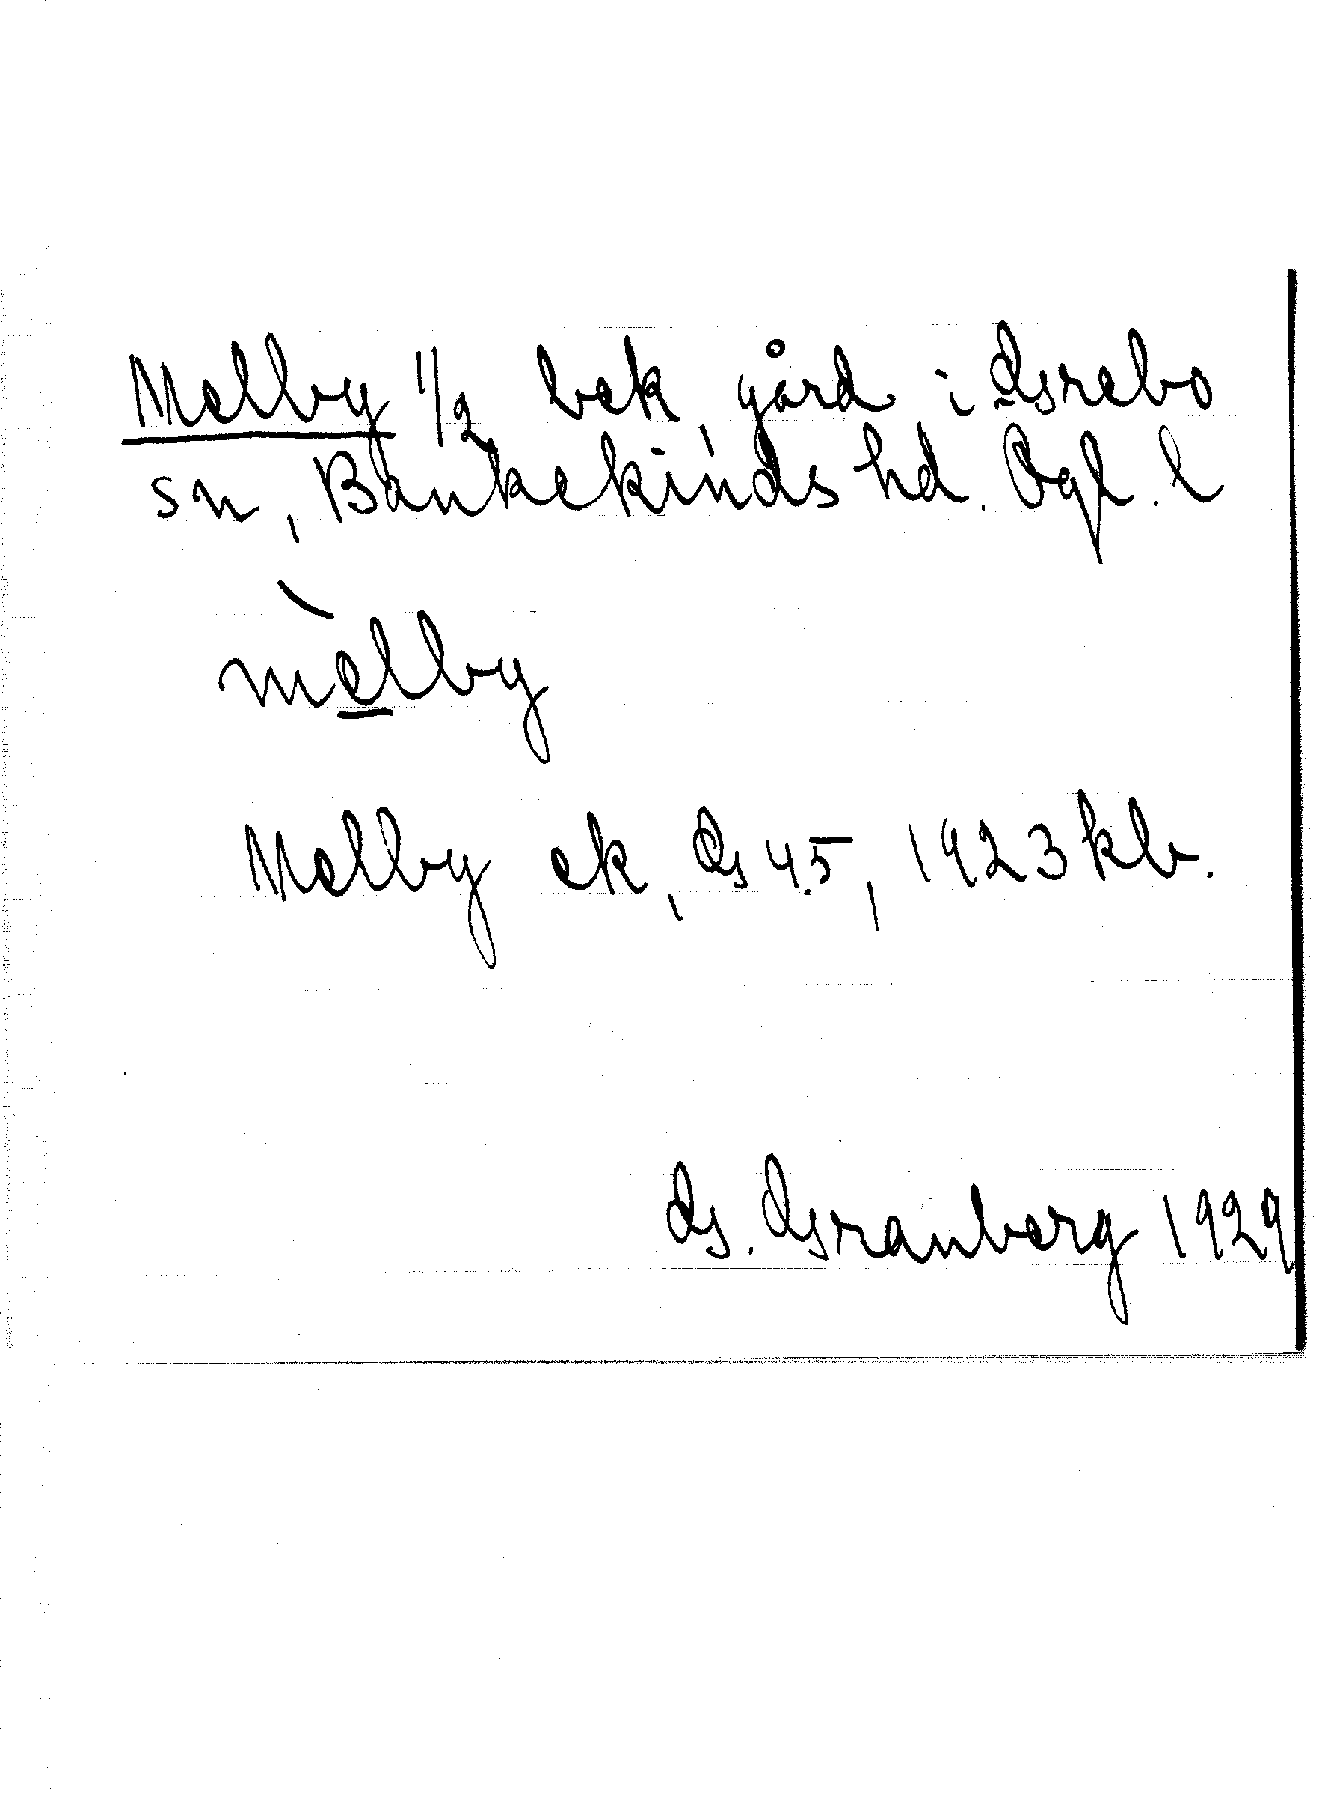 Melby 1/2 bek, gård i Grebo
sn, Bankekinds hd. Ögl. l
mèlby
Melby ek, GS 45, 1923 kb.
G. Granberg 1929